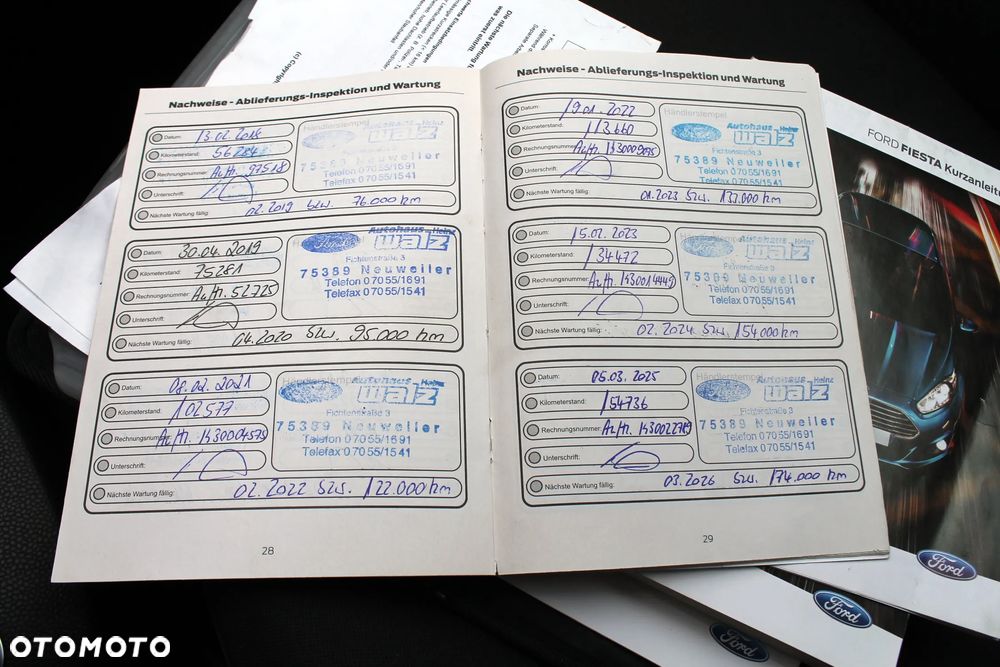 Die nächste Wartung
was zuerst eintrit.
(c) Copyright
Nachweise - Ablieferungs-Inspektion und Wartung
Datum: 13.02.2018
Kilometerstand: 56284
Rechnungsnummer: Auftr. 97518
Unterschrift:
Nächste Wartung fällig: 02.2019 bzw. 76.000 km
Händlerstempel
Autohaus Heinz
Walz
Fichtenstraße 3
75389 Neuweiler
Telefon 07055/1691
Telefax 07055/1541
Datum: 30.04.2019
Kilometerstand: 75281
Rechnungsnummer: Auftr. 52725
Unterschrift:
Nächste Wartung fällig: 04.2020 bzw. 95.000 km
Ford
Autohaus Heinz
Walz
Fichtenstraße 3
75389 Neuweiler
Telefon 07055/1691
Telefax 07055/1541
Datum: 08.02.2021
Kilometerstand: 102577
Rechnungsnummer: Auftr. K30004575
Unterschrift:
Nächste Wartung fällig: 02.2022 bzw. 122.000 km
Händlerstempel
Autohaus Heinz
Walz
Fichtenstraße 3
75389 Neuweiler
Telefon 07055/1691
Telefax 07055/1541
28
Nachweise - Ablieferungs-Inspektion und Wartung
Datum: 19.01.2022
Kilometerstand: 113660
Rechnungsnummer: Auftr.
Unterschrift:
Nächste Wartung fällig: 01.2023 bzw. 133.000 km
Händlerstempel
Autohaus Heinz
Walz
Fichtenstraße 3
75389 Neuweiler
Telefon 07055/1691
Telefax 07055/1541
Datum: 15.02.2023
Kilometerstand: 134472
Rechnungsnummer: Auftr. K30014449
Unterschrift:
Nächste Wartung fällig: 02.2024 bzw. 154.000 km
Autohaus Heinz
Walz
Fichtenstraße 3
75389 Neuweiler
Telefon 07055/1691
Telefax 07055/1541
Datum: 05.03.2025
Kilometerstand: 154736
Rechnungsnummer: Auftr.
Unterschrift:
Nächste Wartung fällig: 03.2026 bzw. 174.000 km
Händlerstempel
Autohaus Heinz
Walz
Fichtenstraße 3
75389 Neuweiler
Telefon 07055/1691
Telefax 07055/1541
29
FORD FIESTA Kurzanleit
Ford
Ford
Ford
OTOMOTO